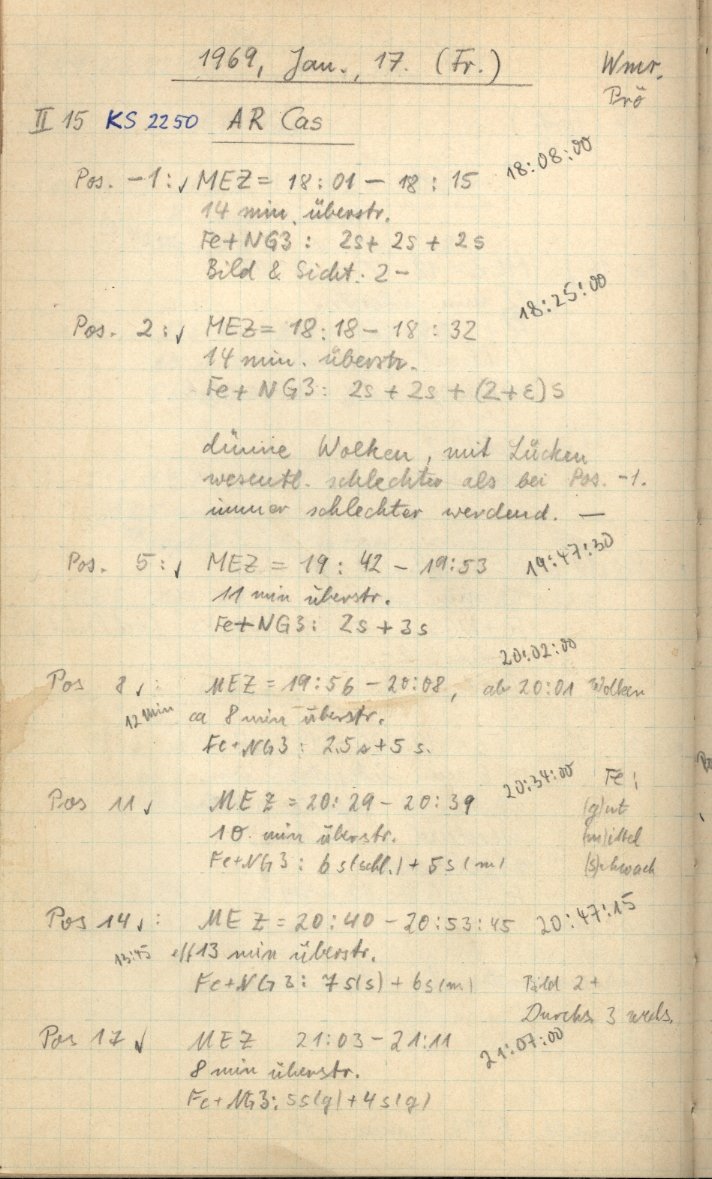 1969, Jan., 17. (Fr.) Wmr.
Prö
II 15 KS 2250 AR Cas
18:08:00
Pos. -1: ✓ MEZ = 18:01 - 18:15
14 min. überstr.
Fe+NG3: 2s + 2s + 2s
Bild & Sicht: 2-
18:25:00
Pos. 2: ✓ MEZ = 18:18 - 18:32
14 min. überstr.
Fe+NG3: 2s + 2s + (2+ε)s
dünne Wolken, mit Lücken
wesentl. schlechter als bei Pos. -1.
immer schlechter werdend. —
Pos. 5: ✓ MEZ = 19:42 - 19:53 19:47:30
11 min überstr.
Fe+NG3: 2s + 3s
20:02:00
Pos 8 ✓: MEZ = 19:56 - 20:08, ab 20:01 Wolken
12 min ca 8 min überstr.
Fe+NG3: 2,5s + 5s.
20:34:00 Fe:
Pos 11 ✓ MEZ = 20:29 - 20:39 (g)ut
10 min überstr. (m)ittel
Fe+NG3: 6s (schl.) + 5s (m) (s)chwach
Pos 14 ✓: MEZ = 20:40 - 20:53:45 20:47:15
13:45 eff 13 min überstr.
Fe+NG3: 7s(s) + 6s(m) Bild 2+
Durchs. 3 wechs.
Pos 17 ✓ MEZ 21:03 - 21:11 21:07:00
8 min überstr.
Fe+NG3: 5s(g) + 4s(g)